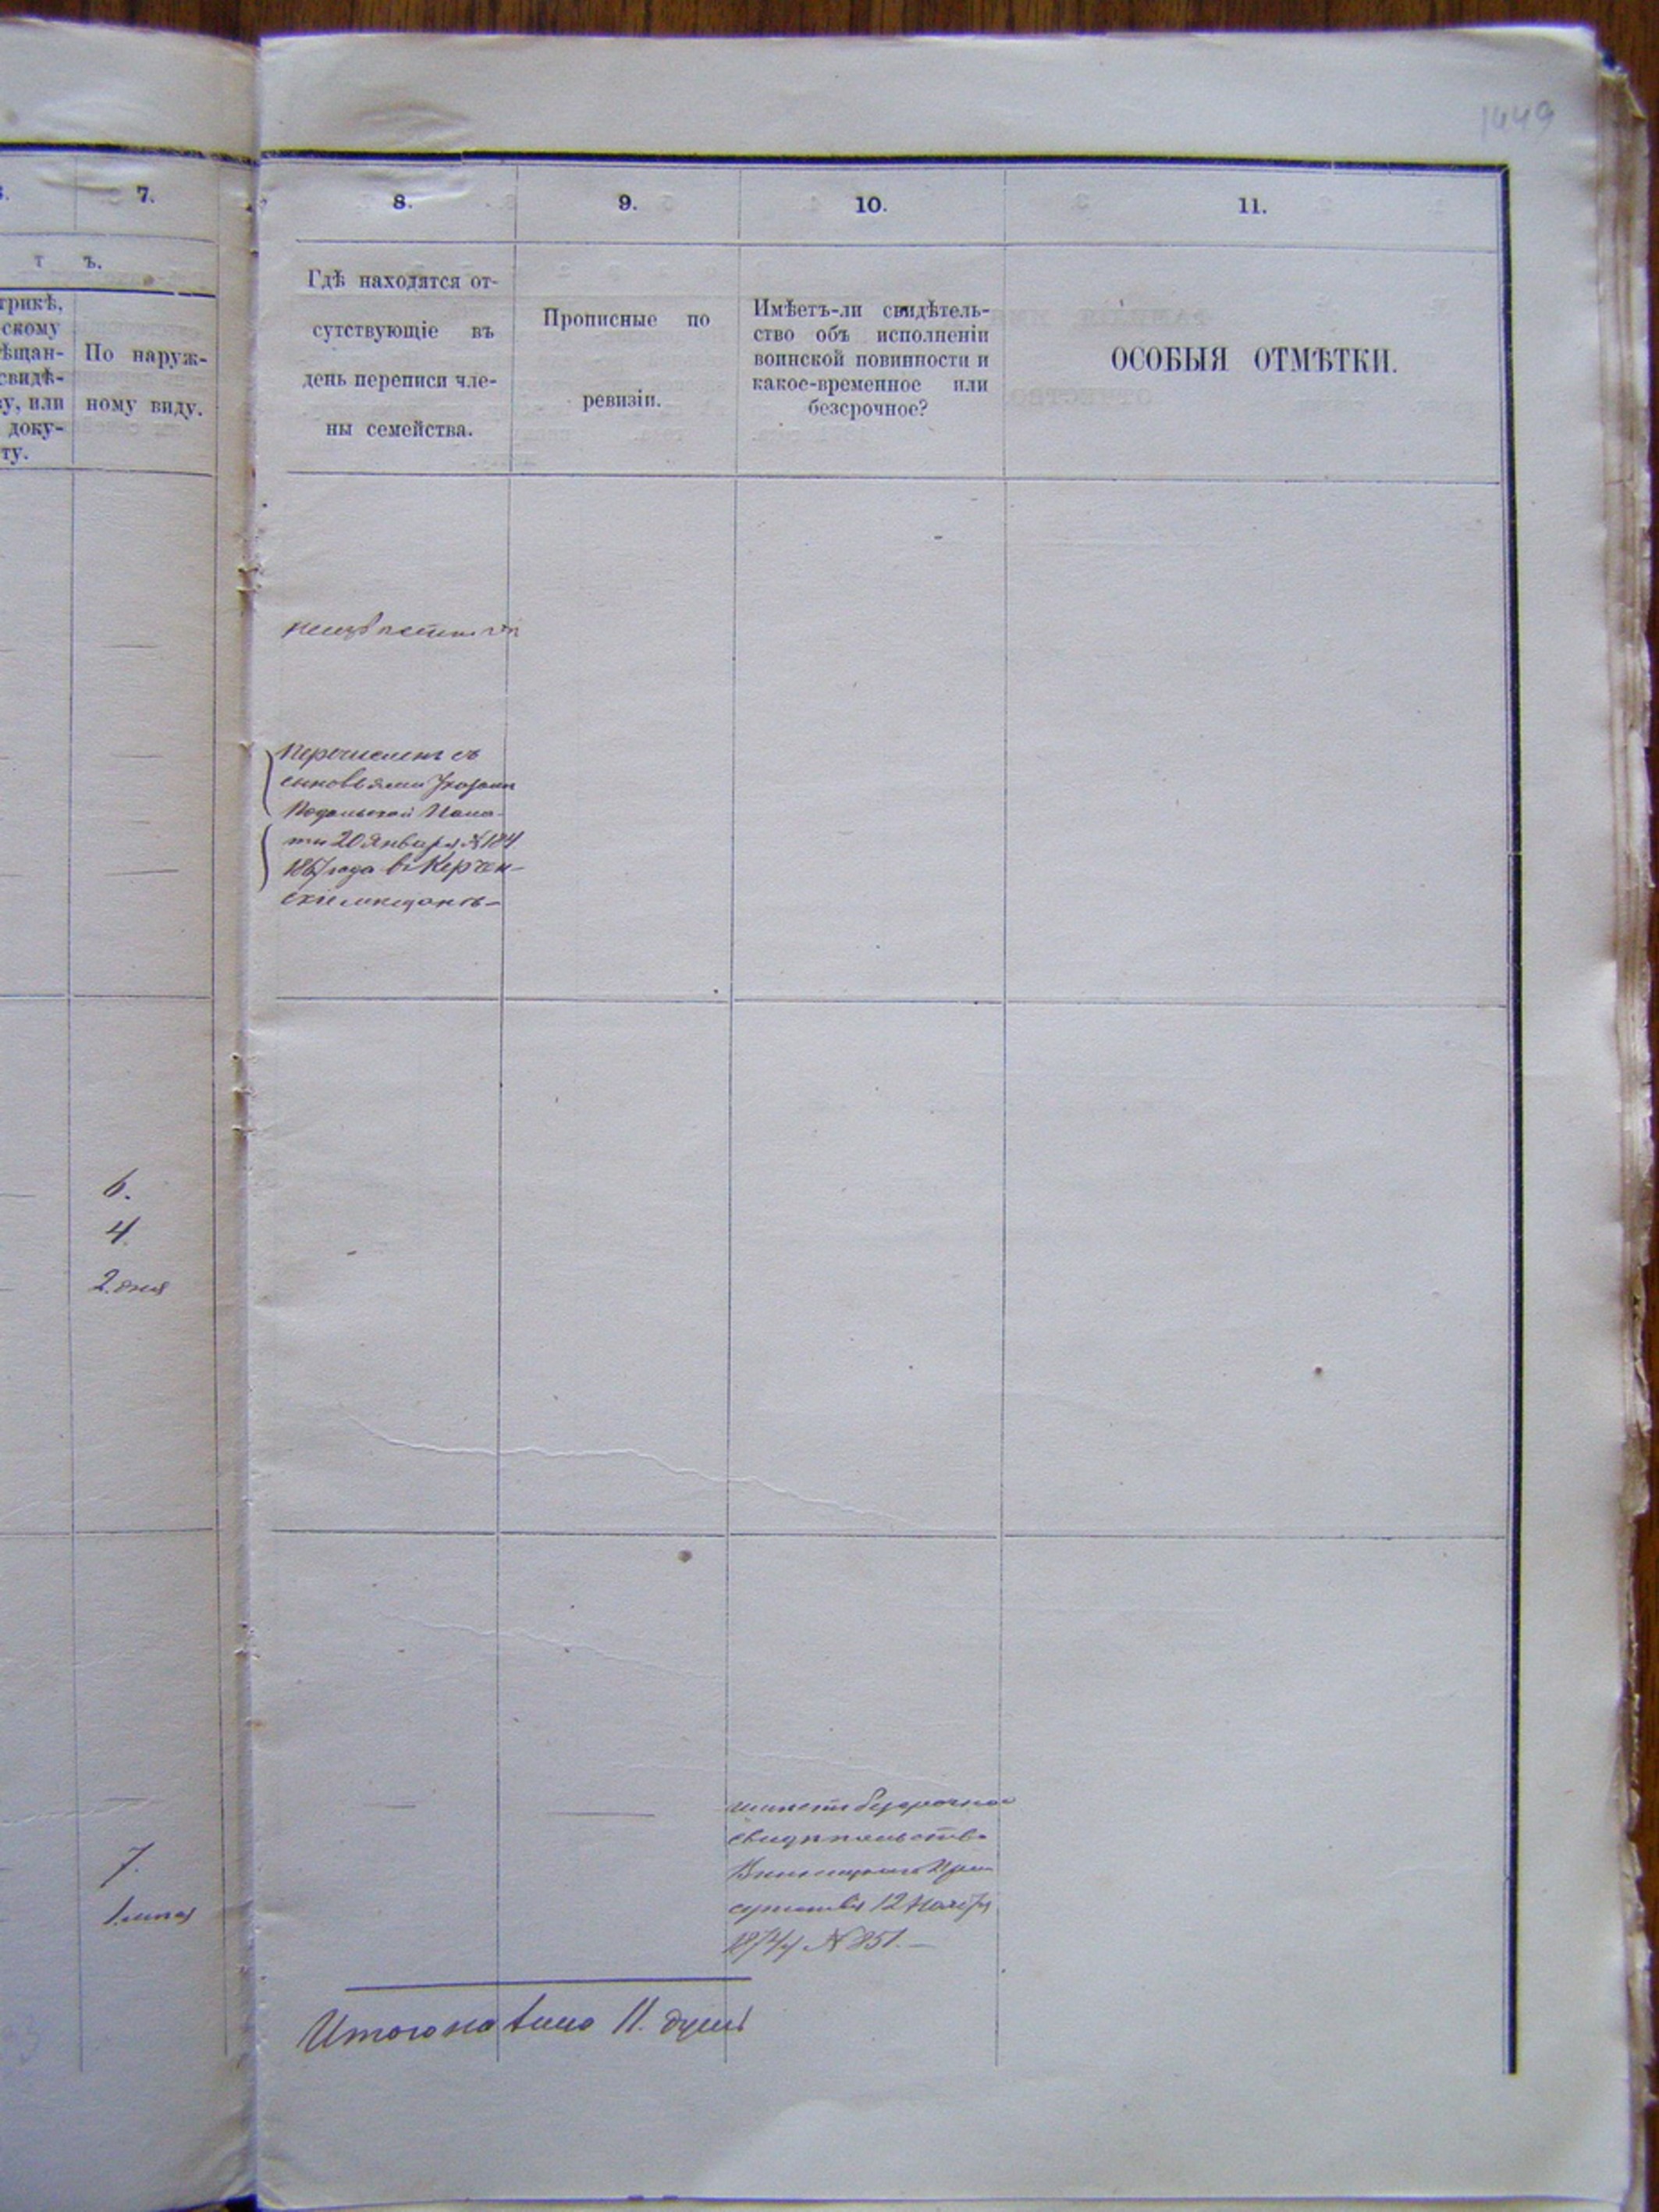 1449
7.
8.
9.
10.
11.
т ъ.
трикѣ,
скому
ѣщан-
свидѣ-
ву, или
доку-
ту.
По наруж-
ному виду.
Гдѣ находятся от-
сутствующіе въ
день переписи чле-
ны семейства.
Прописные по
ревизіи.
Имѣетъ-ли свидѣтель-
ство объ исполненіи
воинской повинности и
какое-временное или
безсрочное?
ОСОБЫЯ ОТМѢТКИ.
Перечисленъ съ
сыновьями Указомъ
Подольской Пала-
ты 20 Января № 184
1867 года въ Керчен-
скіе мѣщане
6.
4
2. дня
имѣетъ безсрочное
свидѣтельство
Винницкаго При
сутствія 12 Ноября
1874 № 851.
7.
1. мѣсяц
Итого на лицо 11. душъ